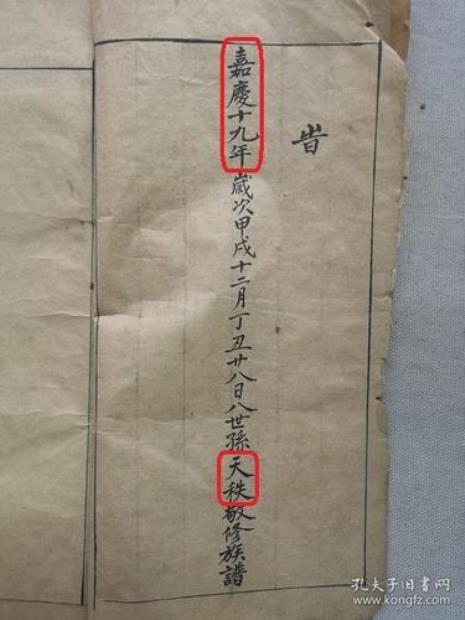 旹
嘉慶十九年歲次甲戌十二月丁丑廿八日八世孫天秩敬修族譜
孔夫子旧书网
www.kongfz.com